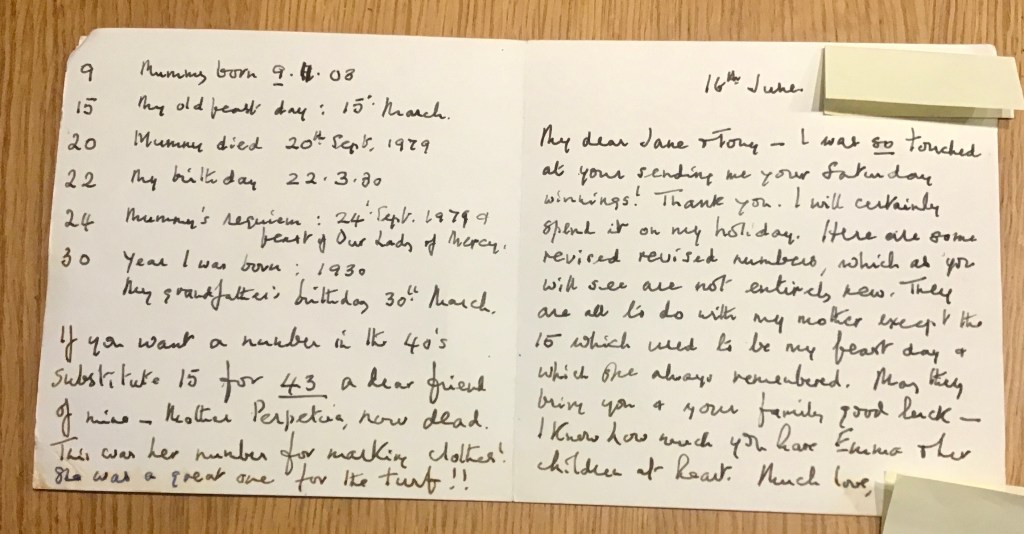 9 Mummy born 9.4.08
15 My old feast day : 15th March.
20 Mummy died 20th Sept, 1979
22 My birthday 22.3.30
24 Mummy's requiem : 24th Sept. 1979
feast of Our Lady of Mercy.
30 Year I was born : 1930
My grandfather's birthday 30th March.
If you want a number in the 40's
substitute 15 for 43 a dear friend
of mine – Mother Perpetua, now dead.
This was her number for marking clothes!
She was a great one for the turf!!
16th June
My dear Jane & Tony – I was so touched
at your sending me your Saturday
winnings! Thank you. I will certainly
spend it on my holiday. Here are some
revised revised numbers, which as you
will see are not entirely new. They
are all to do with my mother except the
15 which used to be my feast day &
which she always remembered. May they
bring you & your family good luck –
I know how much you have Emma & her
children at heart. Much love,